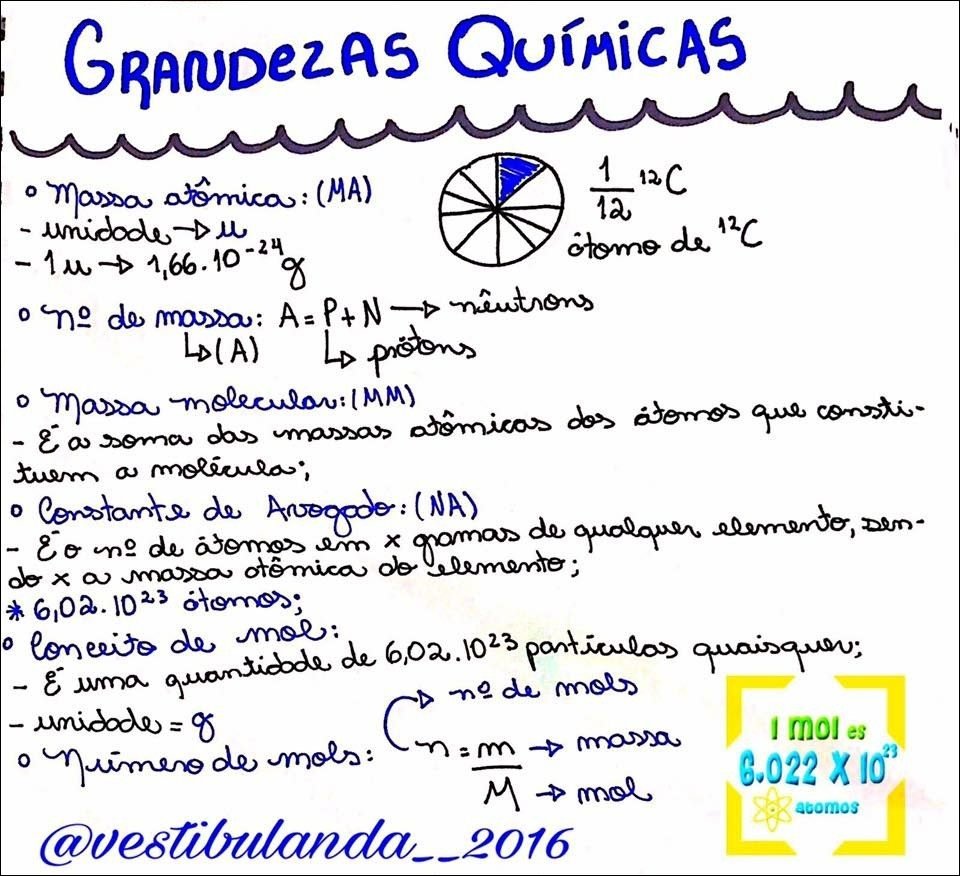 GRANDEZAS QUÍMICAS
° Massa atômica: (MA)
- unidade → u
- 1u → 1,66.10⁻²⁴g
1/12 ¹²C
átomo de ¹²C
° nº de massa: A = P + N → nêutrons
↳(A) ↳ prótons
° Massa molecular: (MM)
- É a soma das massas atômicas dos átomos que consti-
tuem a molécula;
° Constante de Avogado: (NA)
- É o nº de átomos em x gramas de qualquer elemento, sen-
do x a massa atômica do elemento;
* 6,02.10²³ átomos;
° Conceito de mol:
- É uma quantidade de 6,02.10²³ partículas quaisquer;
- unidade = g
° Número de mols:
→ nº de mols
n = m → massa
M → mol
1 mol es
6.022 X 10²³
atomos
@vestibulanda__2016